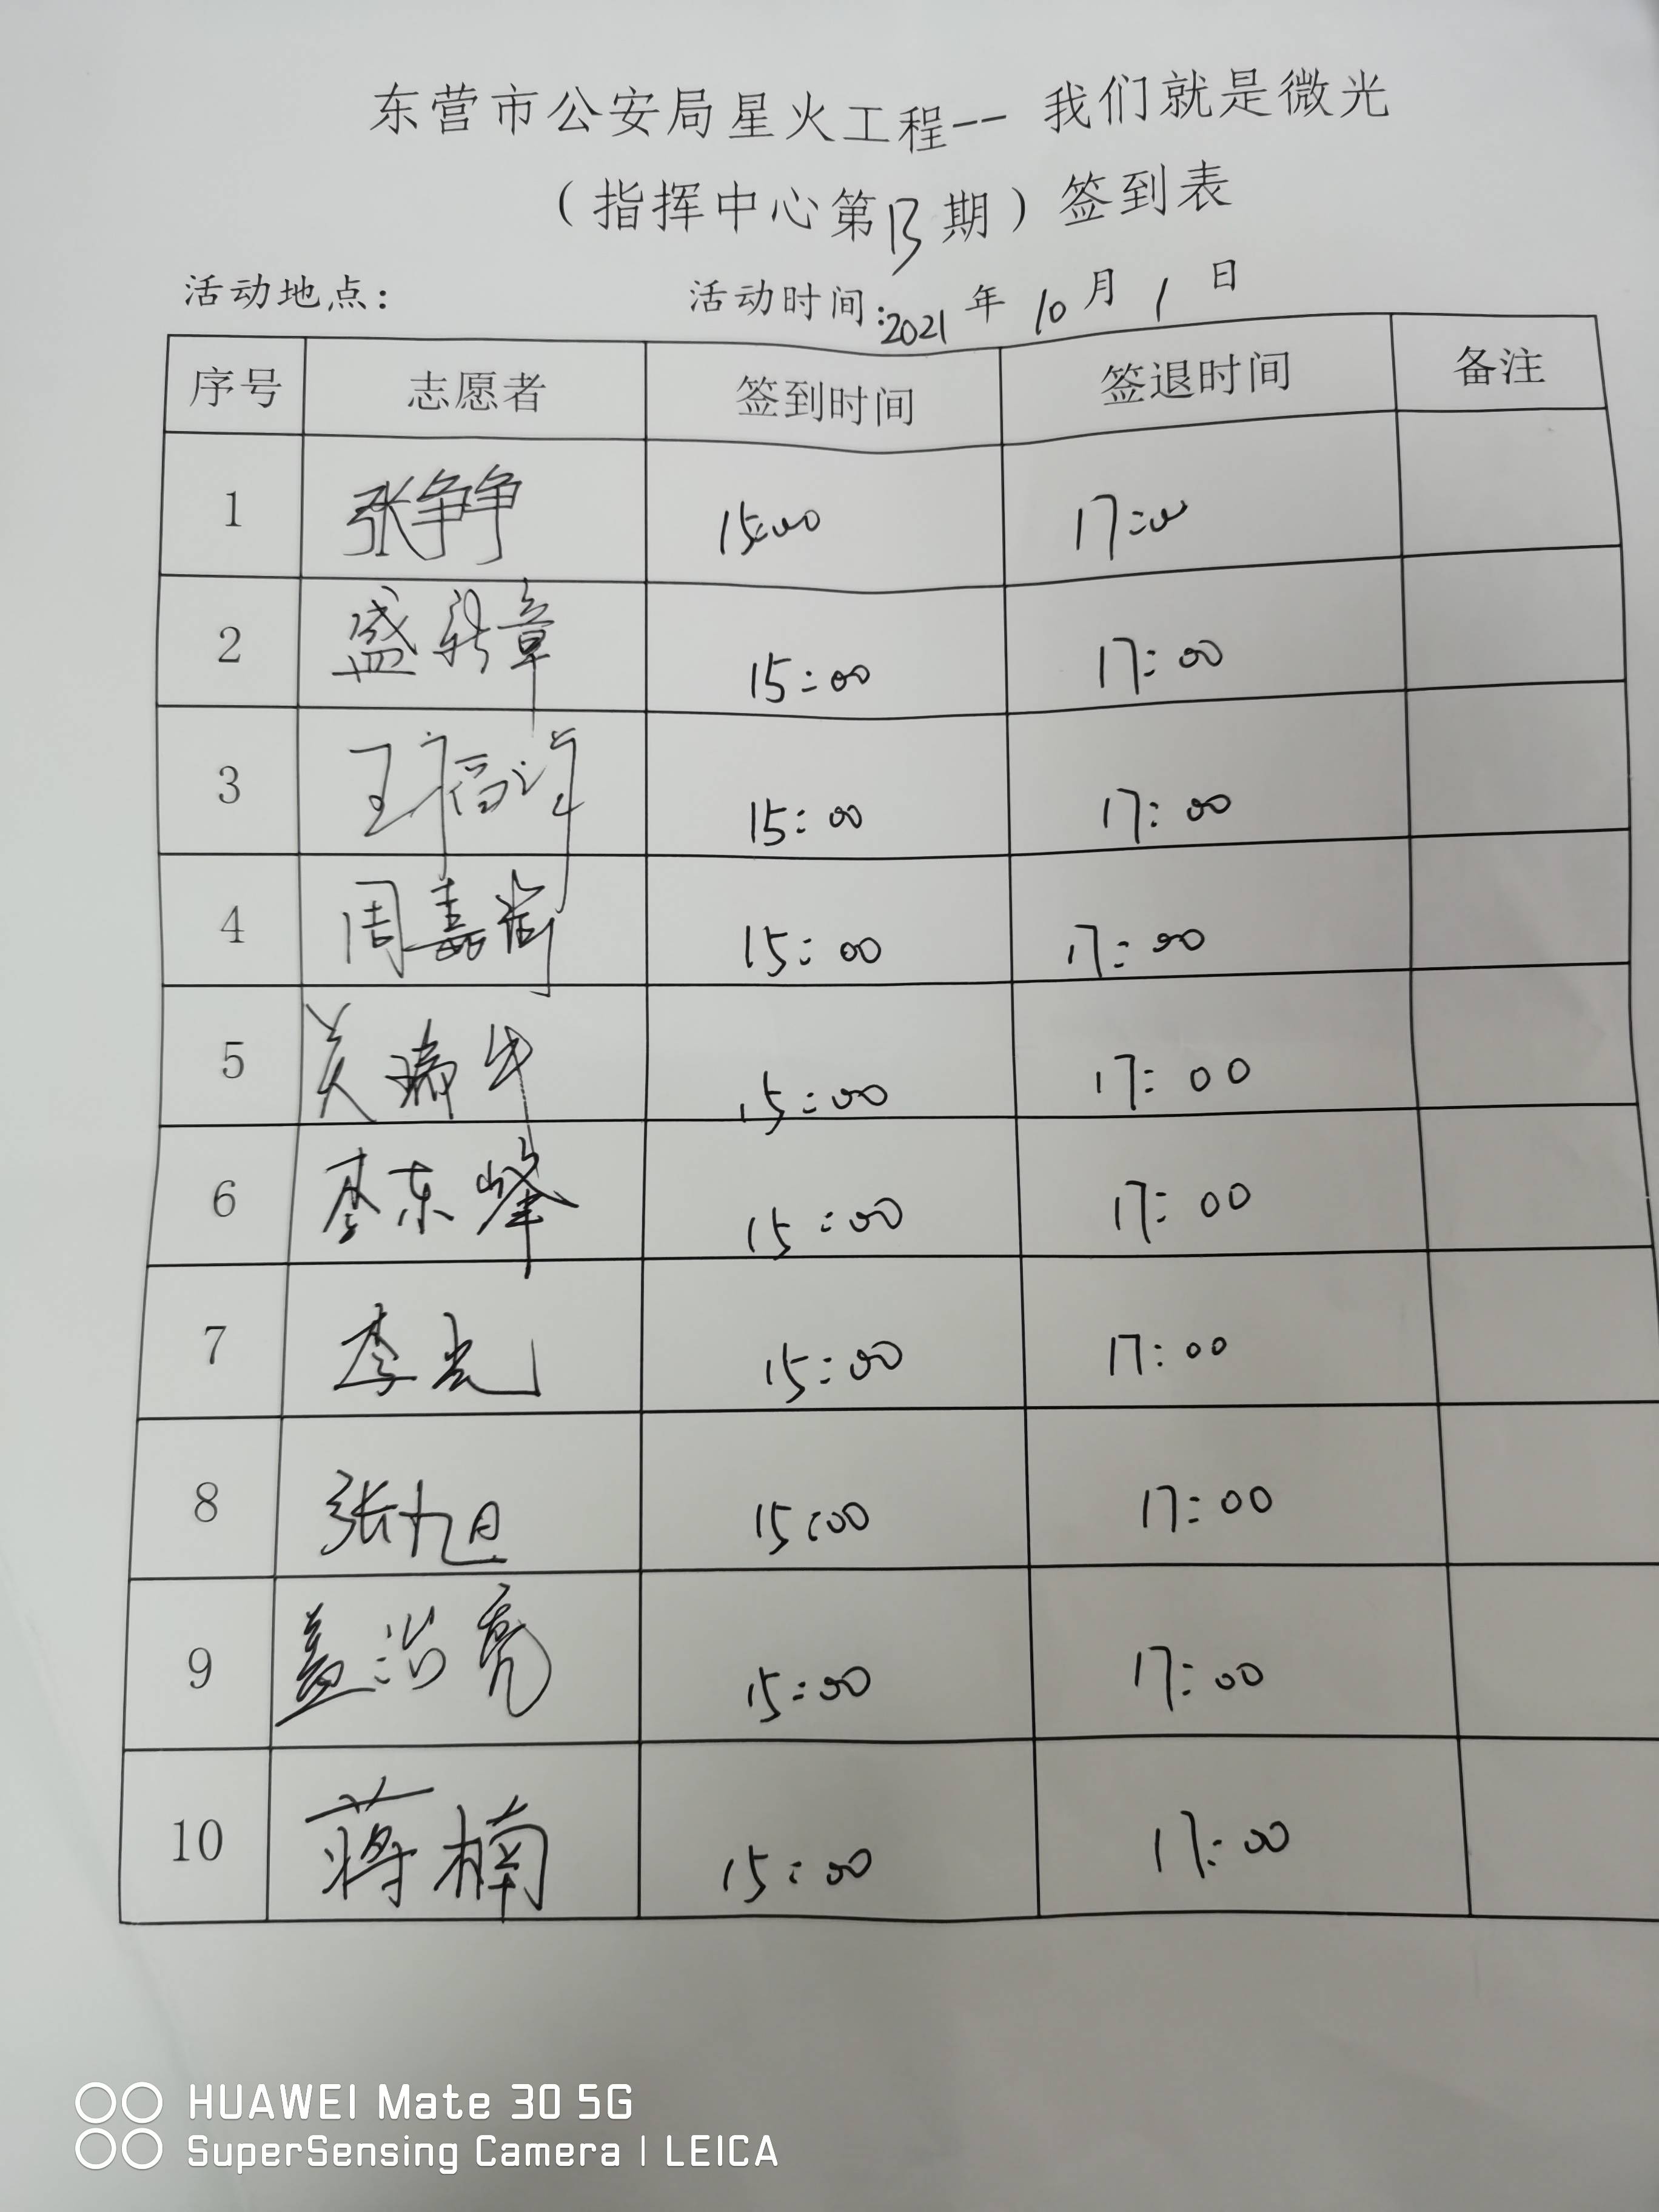 东营市公安局星火工程--我们就是微光
（指挥中心第13期）签到表
活动地点： 活动时间:2021年10月1日
序号 志愿者 签到时间 签退时间 备注
1 张争争 15:00 17:00
2 盛 章 15:00 17:00
3 王 15:00 17:00
4 周嘉 15:00 17:00
5 瑞 15:00 17:00
6 李东峰 15:00 17:00
7 李光 15:00 17:00
8 张旭 15:00 17:00
9 盖治亮 15:00 17:00
10 蒋楠 15:00 17:00
HUAWEI Mate 30 5G
SuperSensing Camera | LEICA